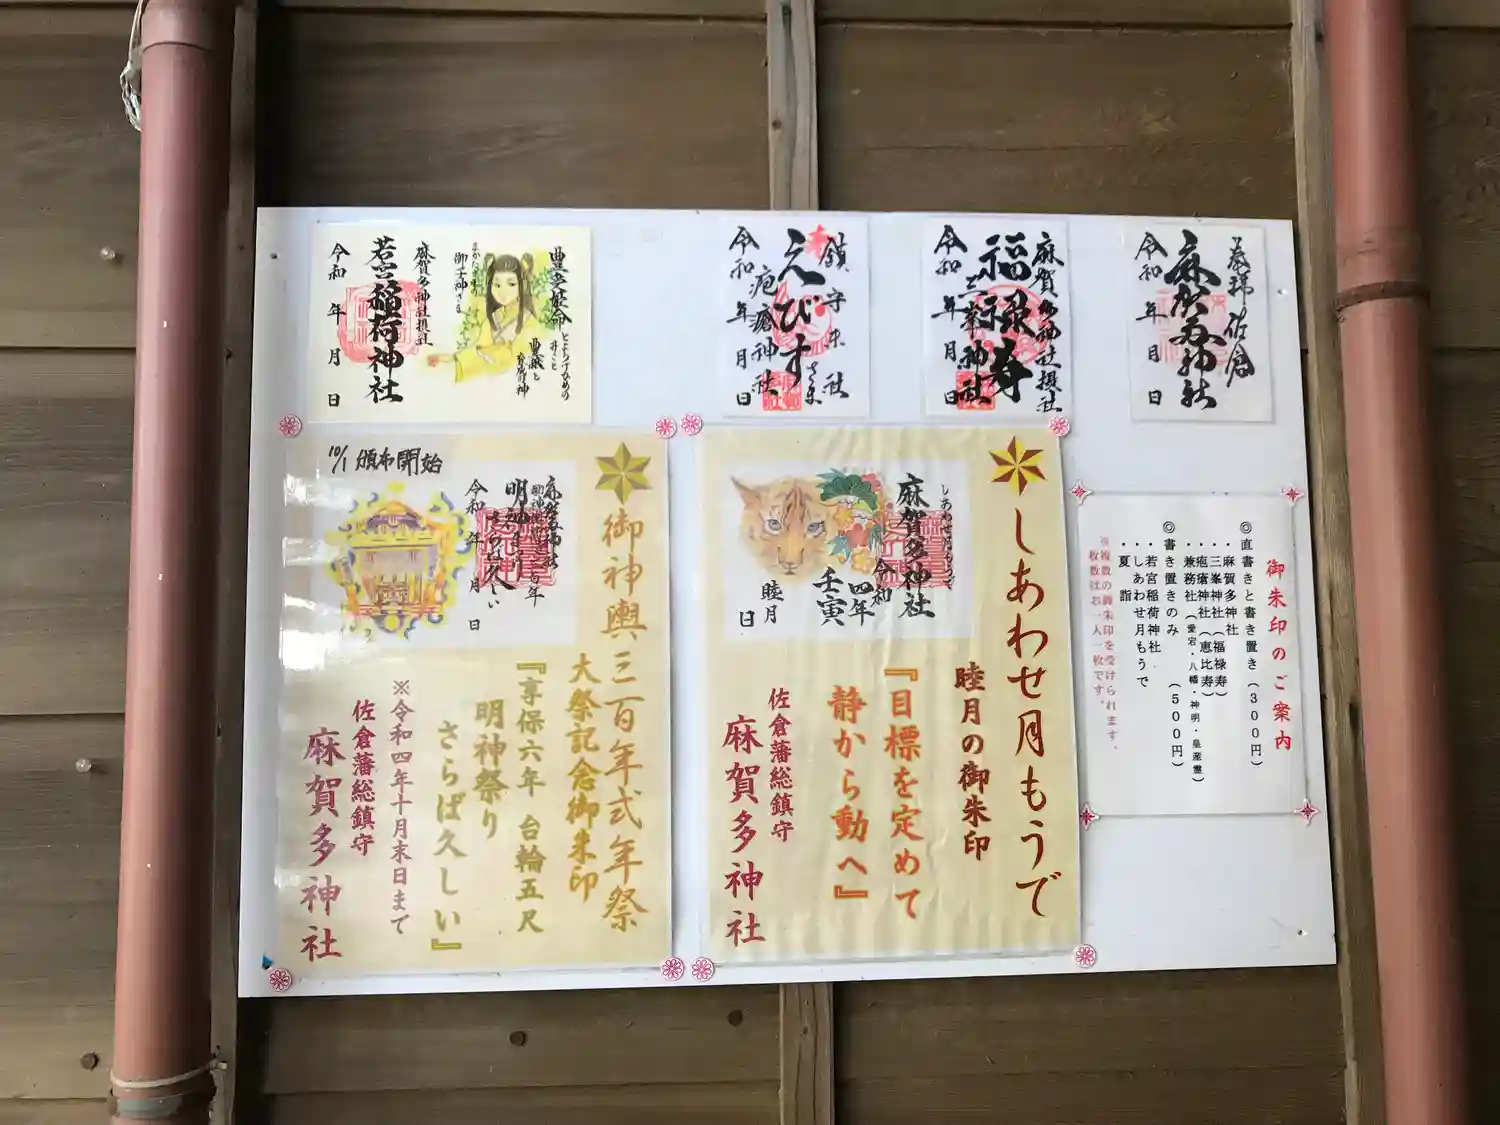 参拝 佐倉
麻賀多神社
令和 年 月 日
麻賀多神社摂社
福禄寿
三峯神社
令和 年 月 日
鎮守末社
えびすさま
疱瘡神社
令和 年 月 日
豊玉姫命
とよたまひめの
みこと
豊穣と
御神さま
麻賀多神社摂社
若宮稲荷神社
令和 年 月 日
御朱印のご案内
◎直書きと書き置き(300円)
・麻賀多神社
・三峯神社(福禄寿)
・疱瘡神社(恵比寿)
・兼務社(愛宕・八幡・神明・皇産霊)
◎書き置きのみ (500円)
・若宮稲荷神社
・しあわせ月もうで
・夏詣
※複数の御朱印を受けられます。
枚数はお一人一枚です。
しあわせ月もうで
しあわせ月もうで
麻賀多神社
令和
四年
壬寅
睦月
日
睦月の御朱印
『目標を定めて
静から動へ』
佐倉藩総鎮守
麻賀多神社
10/1 頒布開始
御神輿三百年式年祭
麻賀多神社
明神まつり
さらば久しい
令和 年 月 日
大祭記念御朱印
『享保六年 台輪五尺
明神祭り
さらば久しい』
※令和四年十月末日まで
佐倉藩総鎮守
麻賀多神社